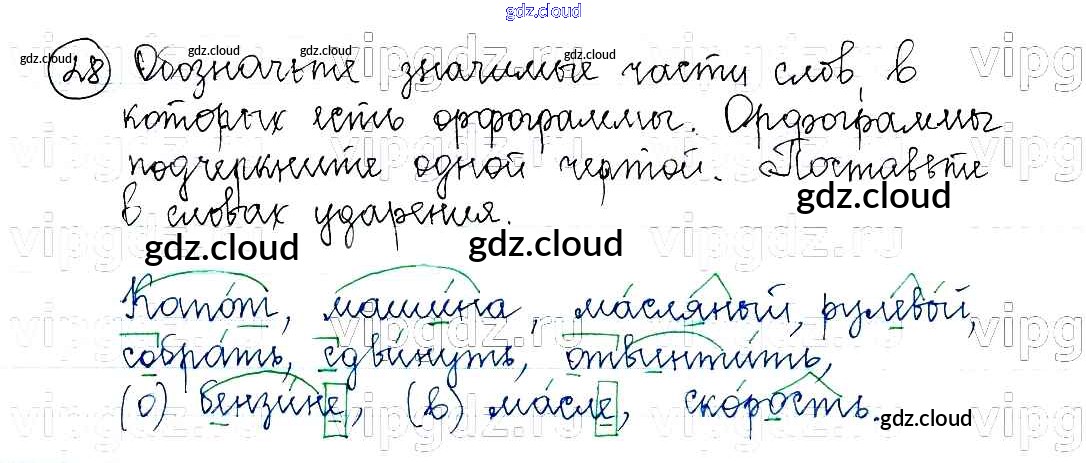 gdz.cloud
28 Обозначьте значимые части слов, в
которых есть орфограммы. Орфограммы
подчеркните одной чертой. Поставьте
в словах ударения.
gdz.cloud gdz.cloud gdz.cloud
Капо́т, маши́на, ма́сляный, рулево́й,
собра́ть, сдви́нуть, отвинти́ть,
(о) бензи́не, (в) ма́сле, ско́рость.
gdz.cloud